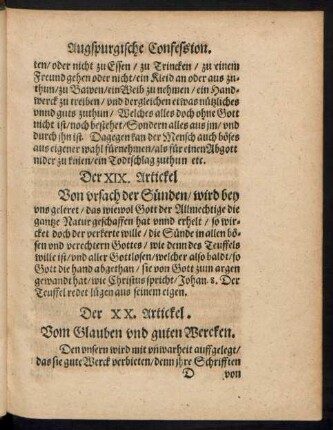 Augspurgische Confession.
ten/ oder nicht zu Essen / zu Trincken / zu einem
Freund gehen oder nicht/ ein Kleid an oder aus zu-
thun/ zu Bawen/ ein Weib zu nehmen / ein Hand-
werck zu treiben / vnd dergleichen etwas nützliches
vnnd guts zuthun / Welches alles doch ohne Gott
nicht ist/ noch bestehet/ Sondern alles aus jm/ vnd
durch jhn ist. Dagegen kan der Mensch auch böses
aus eigener wahl fürnehmen/ als für einen Abgott
nider zu knien/ ein Todtschlag zuthun etc.
Der XIX. Artickel
Von vrsach der Sünden/ wird bey
vns geleret / das wiewol Gott der Allmechtige die
gantze Natur geschaffen hat vnnd erhelt / so wir-
cket doch der verkerte wille / die Sünde in allen bö-
sen vnd verechtern Gottes / wie denn des Teuffels
wille ist/ vnd aller Gottlosen/ welcher also bald/ so
Gott die hand abgethan / sie von Gott zum argen
gewandt hat/ wie Christus spricht/ Johan. 8. Der
Teuffel redet lügen aus seinem eigen.
Der XX. Artickel.
Vom Glauben vnd guten Wercken.
Den vnsern wird mit vnwarheit auffgelegt/
das sie gute Werck verbieten/ denn jhre Schrifften
D von